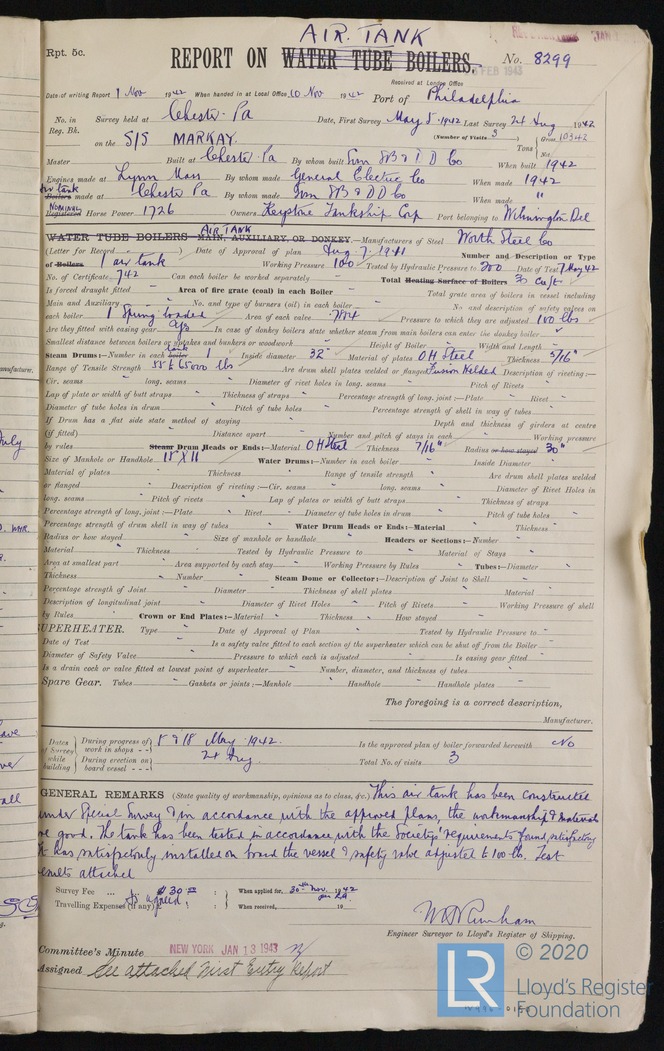 AIR TANK
Rpt. 5c.
REPORT ON WATER TUBE BOILERS. No. 8299
FEB 1943
Received at London Office
Date of writing Report 1 Nov 1942 When handed in at Local Office 10 Nov 1942 Port of Philadelphia
No. in Survey held at Chester Pa Date, First Survey May 5 1942 Last Survey 24 Aug 1942
Reg. Bk. (Number of Visits 3)
on the S/S MARKAY. Tons Gross 10342
Net
Master Built at Chester Pa By whom built Sun SB & DD Co When built 1942
Engines made at Lynn Mass By whom made General Electric Co When made 1942
Air tank
Boilers made at Chester Pa By whom made Sun SB & DD Co When made "
NOMINAL
Registered Horse Power 1726 Owners Keystone Tankship Corp Port belonging to Wilmington Del
AIR TANK
WATER TUBE BOILERS—MAIN, AUXILIARY, OR DONKEY.—Manufacturers of Steel Worth Steel Co
(Letter for Record ) Date of Approval of plan Aug 7. 1941 Number and Description or Type
of Boilers 1 air tank Working Pressure 100 Tested by Hydraulic Pressure to 200 Date of Test 7 May 42
No. of Certificate 742 Can each boiler be worked separately Total Heating Surface of Boilers 30 Cu ft
Is forced draught fitted Area of fire grate (coal) in each Boiler Total grate area of boilers in vessel including
Main and Auxiliary No. and type of burners (oil) in each boiler No. and description of safety valves on
each boiler 1 Spring loaded Area of each valve .7854 Pressure to which they are adjusted 100 lbs
Are they fitted with easing gear Yes In case of donkey boilers state whether steam from main boilers can enter the donkey boiler
Smallest distance between boilers or uptakes and bunkers or woodwork Height of Boiler Width and Length
tank
Steam Drums:—Number in each boiler 1 Inside diameter 32" Material of plates OH Steel Thickness 5/16"
Range of Tensile Strength 55 to 65000 lbs Are drum shell plates welded or flanged Fusion Welded Description of riveting:—
Cir. seams long. seams Diameter of rivet holes in long. seams Pitch of Rivets
Lap of plate or width of butt straps Thickness of straps Percentage strength of long. joint:—Plate Rivet
Diameter of tube holes in drum Pitch of tube holes Percentage strength of shell in way of tubes
If Drum has a flat side state method of staying Depth and thickness of girders at centre
(if fitted) Distance apart Number and pitch of stays in each Working pressure
by rules Steam Drum Heads or Ends:—Material OH Steel Thickness 7/16" Radius or how stayed 30"
Size of Manhole or Handhole 15 X 11 Water Drums:—Number in each boiler Inside Diameter
Material of plates Thickness Range of tensile strength Are drum shell plates welded
or flanged Description of riveting:—Cir. seams long. seams Diameter of Rivet Holes in
long. seams Pitch of rivets Lap of plates or width of butt straps Thickness of straps
Percentage strength of long. joint:—Plate Rivet Diameter of tube holes in drum Pitch of tube holes
Percentage strength of drum shell in way of tubes Water Drum Heads or Ends:—Material Thickness
Radius or how stayed Size of manhole or handhole Headers or Sections:—Number
Material Thickness Tested by Hydraulic Pressure to Material of Stays
Area at smallest part Area supported by each stay Working Pressure by Rules Tubes:—Diameter
Thickness Number Steam Dome or Collector:—Description of Joint to Shell
Percentage strength of Joint Diameter Thickness of shell plates Material
Description of longitudinal joint Diameter of Rivet Holes Pitch of Rivets Working Pressure of shell
by Rules Crown or End Plates:—Material Thickness How stayed
SUPERHEATER. Type Date of Approval of Plan Tested by Hydraulic Pressure to
Date of Test Is a safety valve fitted to each section of the superheater which can be shut off from the Boiler
Diameter of Safety Valve Pressure to which each is adjusted Is easing gear fitted
Is a drain cock or valve fitted at lowest point of superheater Number, diameter, and thickness of tubes
Spare Gear. Tubes Gaskets or joints:—Manhole Handhole Handhole plates
The foregoing is a correct description,
Manufacturer.
Dates of Survey while building
During progress of work in shops - - 5 & 18 May 1942. Is the approved plan of boiler forwarded herewith No
During erection on board vessel - - - 24 Aug Total No. of visits 3
GENERAL REMARKS (State quality of workmanship, opinions as to class, &c.) This air tank has been constructed
under Special Survey & in accordance with the approved plans, the workmanship & materials
are good. The tank has been tested in accordance with the Society's requirements found satisfactory
It has satisfactorily installed on board the vessel & safety valve adjusted to 100 lb. Test
results attached
Survey Fee ... $30 00 : When applied for, 30th Nov. 1942
Travelling Expenses (if any) as agreed : When received, 19
Engineer Surveyor to Lloyd's Register of Shipping.
Committee's Minute NEW YORK JAN 13 1943
Assigned See attached First Entry Report
© 2020
LR
Lloyd's Register
Foundation